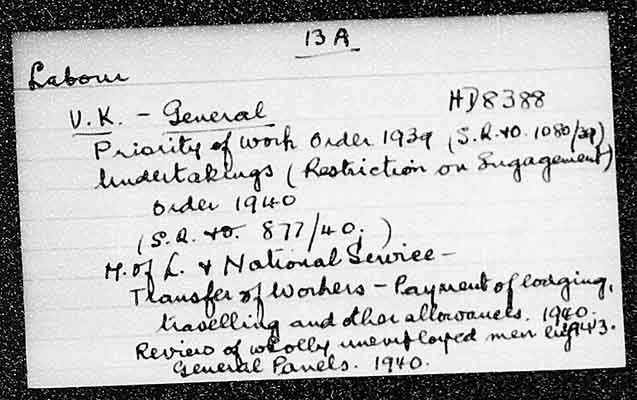 13 A
Labour
U.K. - General HD8388
Priority of Work Order 1939 (S.R.&O. 1080/39)
Undertakings (Restriction on Engagement)
Order 1940
(S.R. &O. 877/40.)
M. of L. & National Service -
Transfer of Workers - Payment of lodging,
travelling and other allowances. 1940.
Review of wholly unemployed men by 1943.
General Panels. 1940.